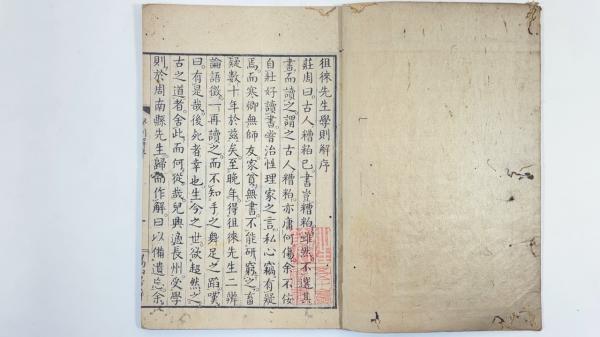 徂徠先生學則解序
莊周曰古人糟粕已書豈糟粕雖然不選其
書而讀之謂之古人糟粕亦庸何傷余不佞
自壯好讀書嘗治性理家之言私心竊有疑
焉而寒鄉無師友家貧無書不能研窮之畜
疑數十年於茲矣至晚年得徂徠先生二辨
論語徵一再讀之而不知手之舞足之蹈嘆
曰有是哉後死者幸也生今之世欲超然之
古之道者舍此而何從哉兒典適長州受學
則於周南縣先生歸而作解曰以備遺忘余